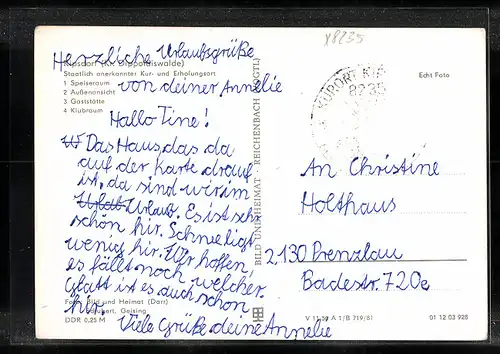 x8235
Herzliche Urlaubsgrüße
Kipsdorf (Kr. Dippoldiswalde)
Staatlich anerkannter Kur- und Erholungsort
1 Speiseraum
2 Außenansicht
3 Gaststätte
4 Klubraum
von deiner Annelie
Echt Foto
KURORT KIP
8235
Hallo Tine!
Das Haus, das da
auf der Karte drauf
ist, da sind wir im
Urlaub. Es ist sehr
schön hir. Schnee ligt
wenig hir. Wir hoffen,
es fällt noch welcher.
Glatt ist es auch schon
hir.
Viele Grüße deine Annelie
BILD UND HEIMAT · REICHENBACH (VOGTL)
An Christine
Holthaus
2130 Prenzlau
Badestr. 720e
Foto: Bild und Heimat (Darr)
Geising
DDR 0,25 M
V 11 50 A 1/B 719/81
01 12 03 928